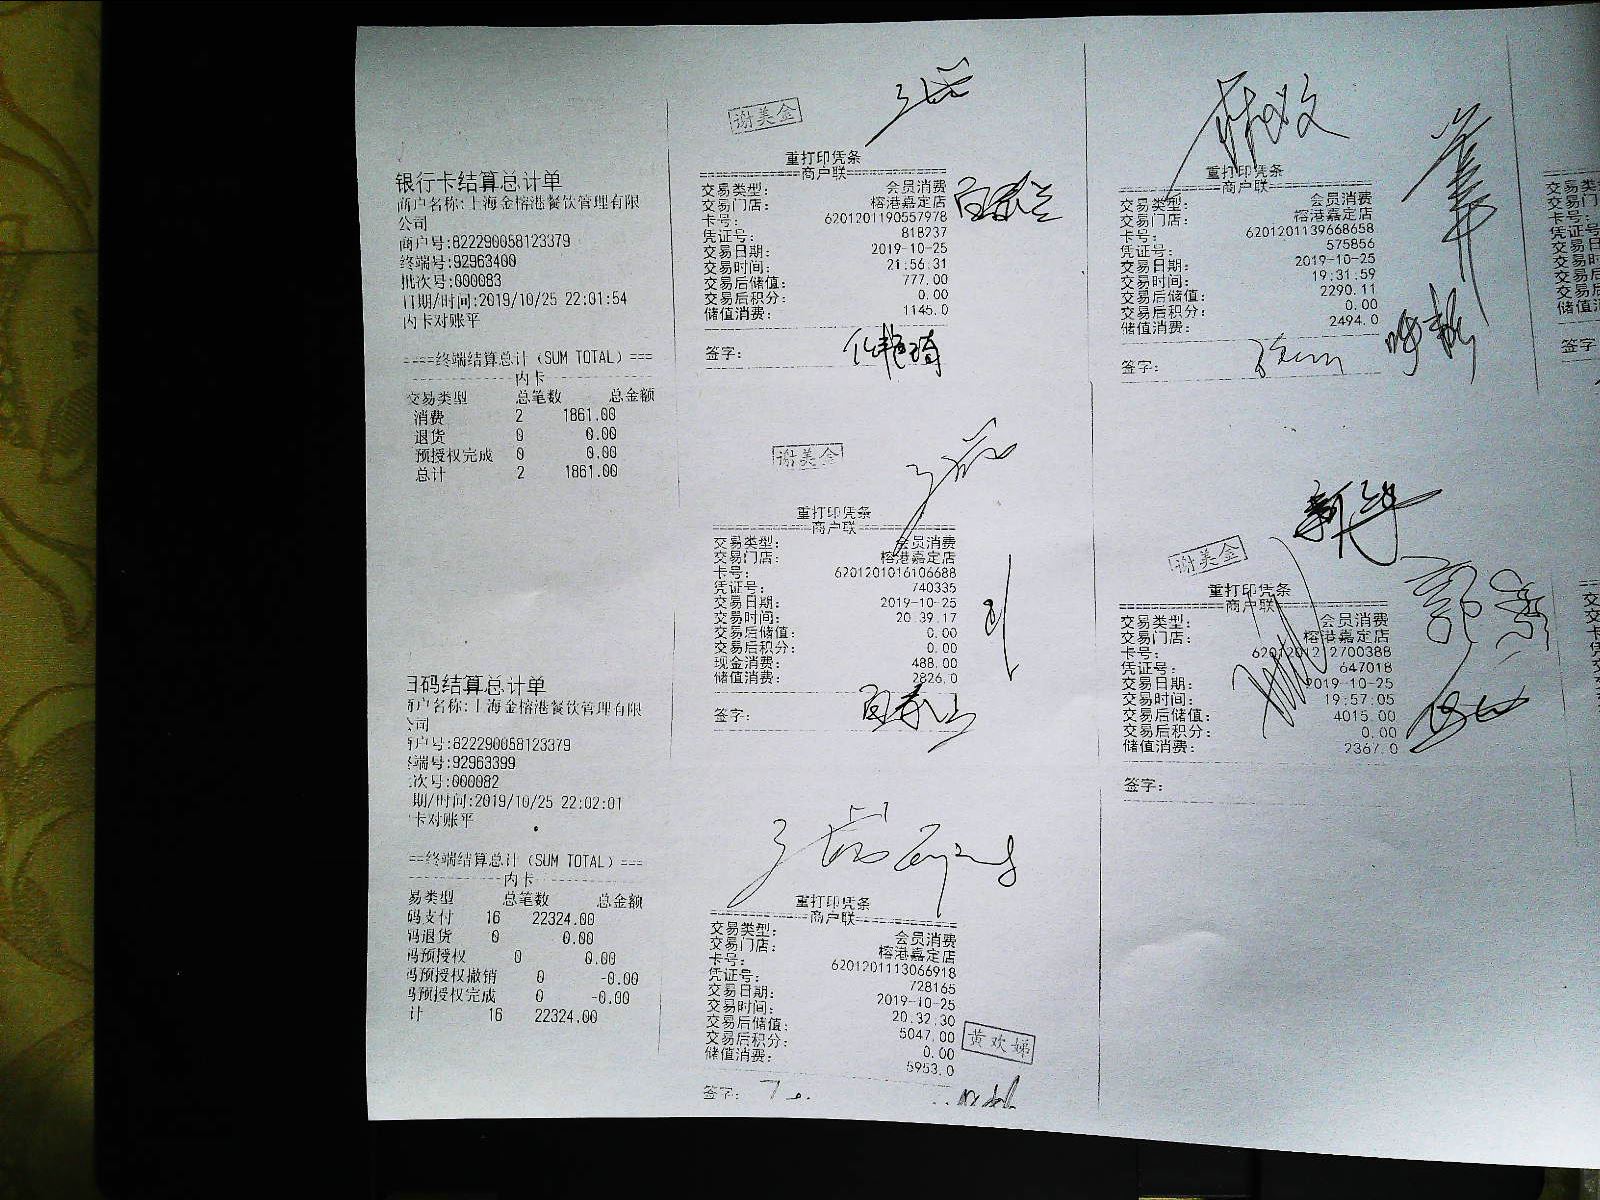 银行卡结算总计单
商户名称:上海金榕港餐饮管理有限
公司
商户号:822290058123379
终端号:92963400
批次号:000083
日期/时间:2019/10/25 22:01:54
内卡对账平
====终端结算总计(SUM TOTAL)===
内卡
交易类型 总笔数 总金额
消费 2 1861.00
退货 0 0.00
预授权完成 0 0.00
总计 2 1861.00
扫码结算总计单
商户名称:上海金榕港餐饮管理有限
公司
商户号:822290058123379
终端号:92963399
次号:000082
期/时间:2019/10/25 22:02:01
卡对账平
==终端结算总计(SUM TOTAL)===
内卡
易类型 总笔数 总金额
码支付 16 22324.00
码退货 0 0.00
码预授权 0 0.00
码预授权撤销 0 -0.00
码预授权完成 0 -0.00
计 16 22324.00
谢美金
重打印凭条
商户联
交易类型: 会员消费
交易门店: 榕港嘉定店
卡号: 6201201190557978
凭证号: 818237
交易日期: 2019-10-25
交易时间: 21:56:31
交易后储值: 777.00
交易后积分: 0.00
储值消费: 1145.0
签字:
谢美金
重打印凭条
商户联
交易类型: 会员消费
交易门店: 榕港嘉定店
卡号: 6201201016106688
凭证号: 740335
交易日期: 2019-10-25
交易时间: 20:39:17
交易后储值: 0.00
交易后积分: 0.00
现金消费: 488.00
储值消费: 2826.0
签字:
重打印凭条
商户联
交易类型: 会员消费
交易门店: 榕港嘉定店
卡号: 6201201113066918
凭证号: 728165
交易日期: 2019-10-25
交易时间: 20:32:30
交易后储值: 5047.00
交易后积分: 0.00
储值消费: 5953.0
黄欢娣
签字:
重打印凭条
商户联
交易类型: 会员消费
交易门店: 榕港嘉定店
卡号: 6201201139668658
凭证号: 575856
交易日期: 2019-10-25
交易时间: 19:31:59
交易后储值: 2290.11
交易后积分: 0.00
储值消费: 2494.0
签字:
谢美金
重打印凭条
商户联
交易类型: 会员消费
交易门店: 榕港嘉定店
卡号: 6201201212700388
凭证号: 647018
交易日期: 2019-10-25
交易时间: 19:57:05
交易后储值: 4015.00
交易后积分: 0.00
储值消费: 2367.0
签字:
交易类
交易门
卡号:
凭证号
交易日
交易时
交易后
交易后
储值消
签字